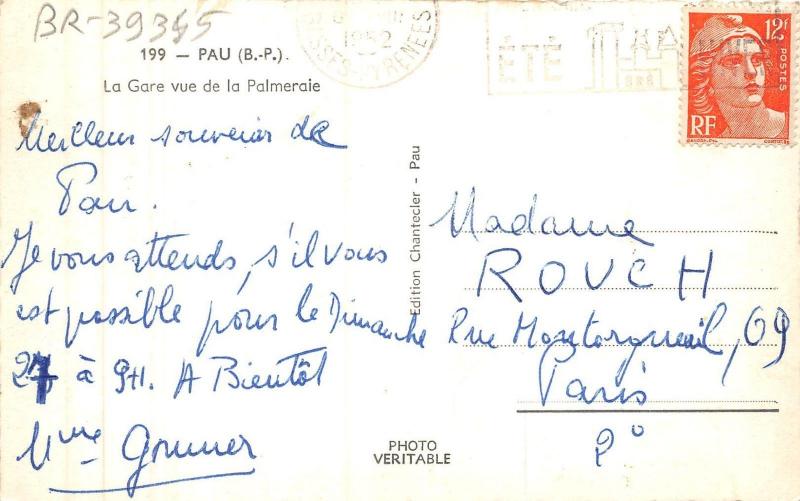 BR-39345
199 — PAU (B.-P.).
La Gare vue de la Palmeraie
Meilleur souvenir de
Pau.
Je vous attends, s'il vous
est possible pour le Dimanche
27 à 9H. A Bientôt
Mme
Edition Chantecler - Pau
PHOTO
VERITABLE
1952
BASSES-PYRENEES
ÉTÉ
12f
POSTES
RF
Madame
ROUCH
Rue Montorgueil, 69
Paris
2°